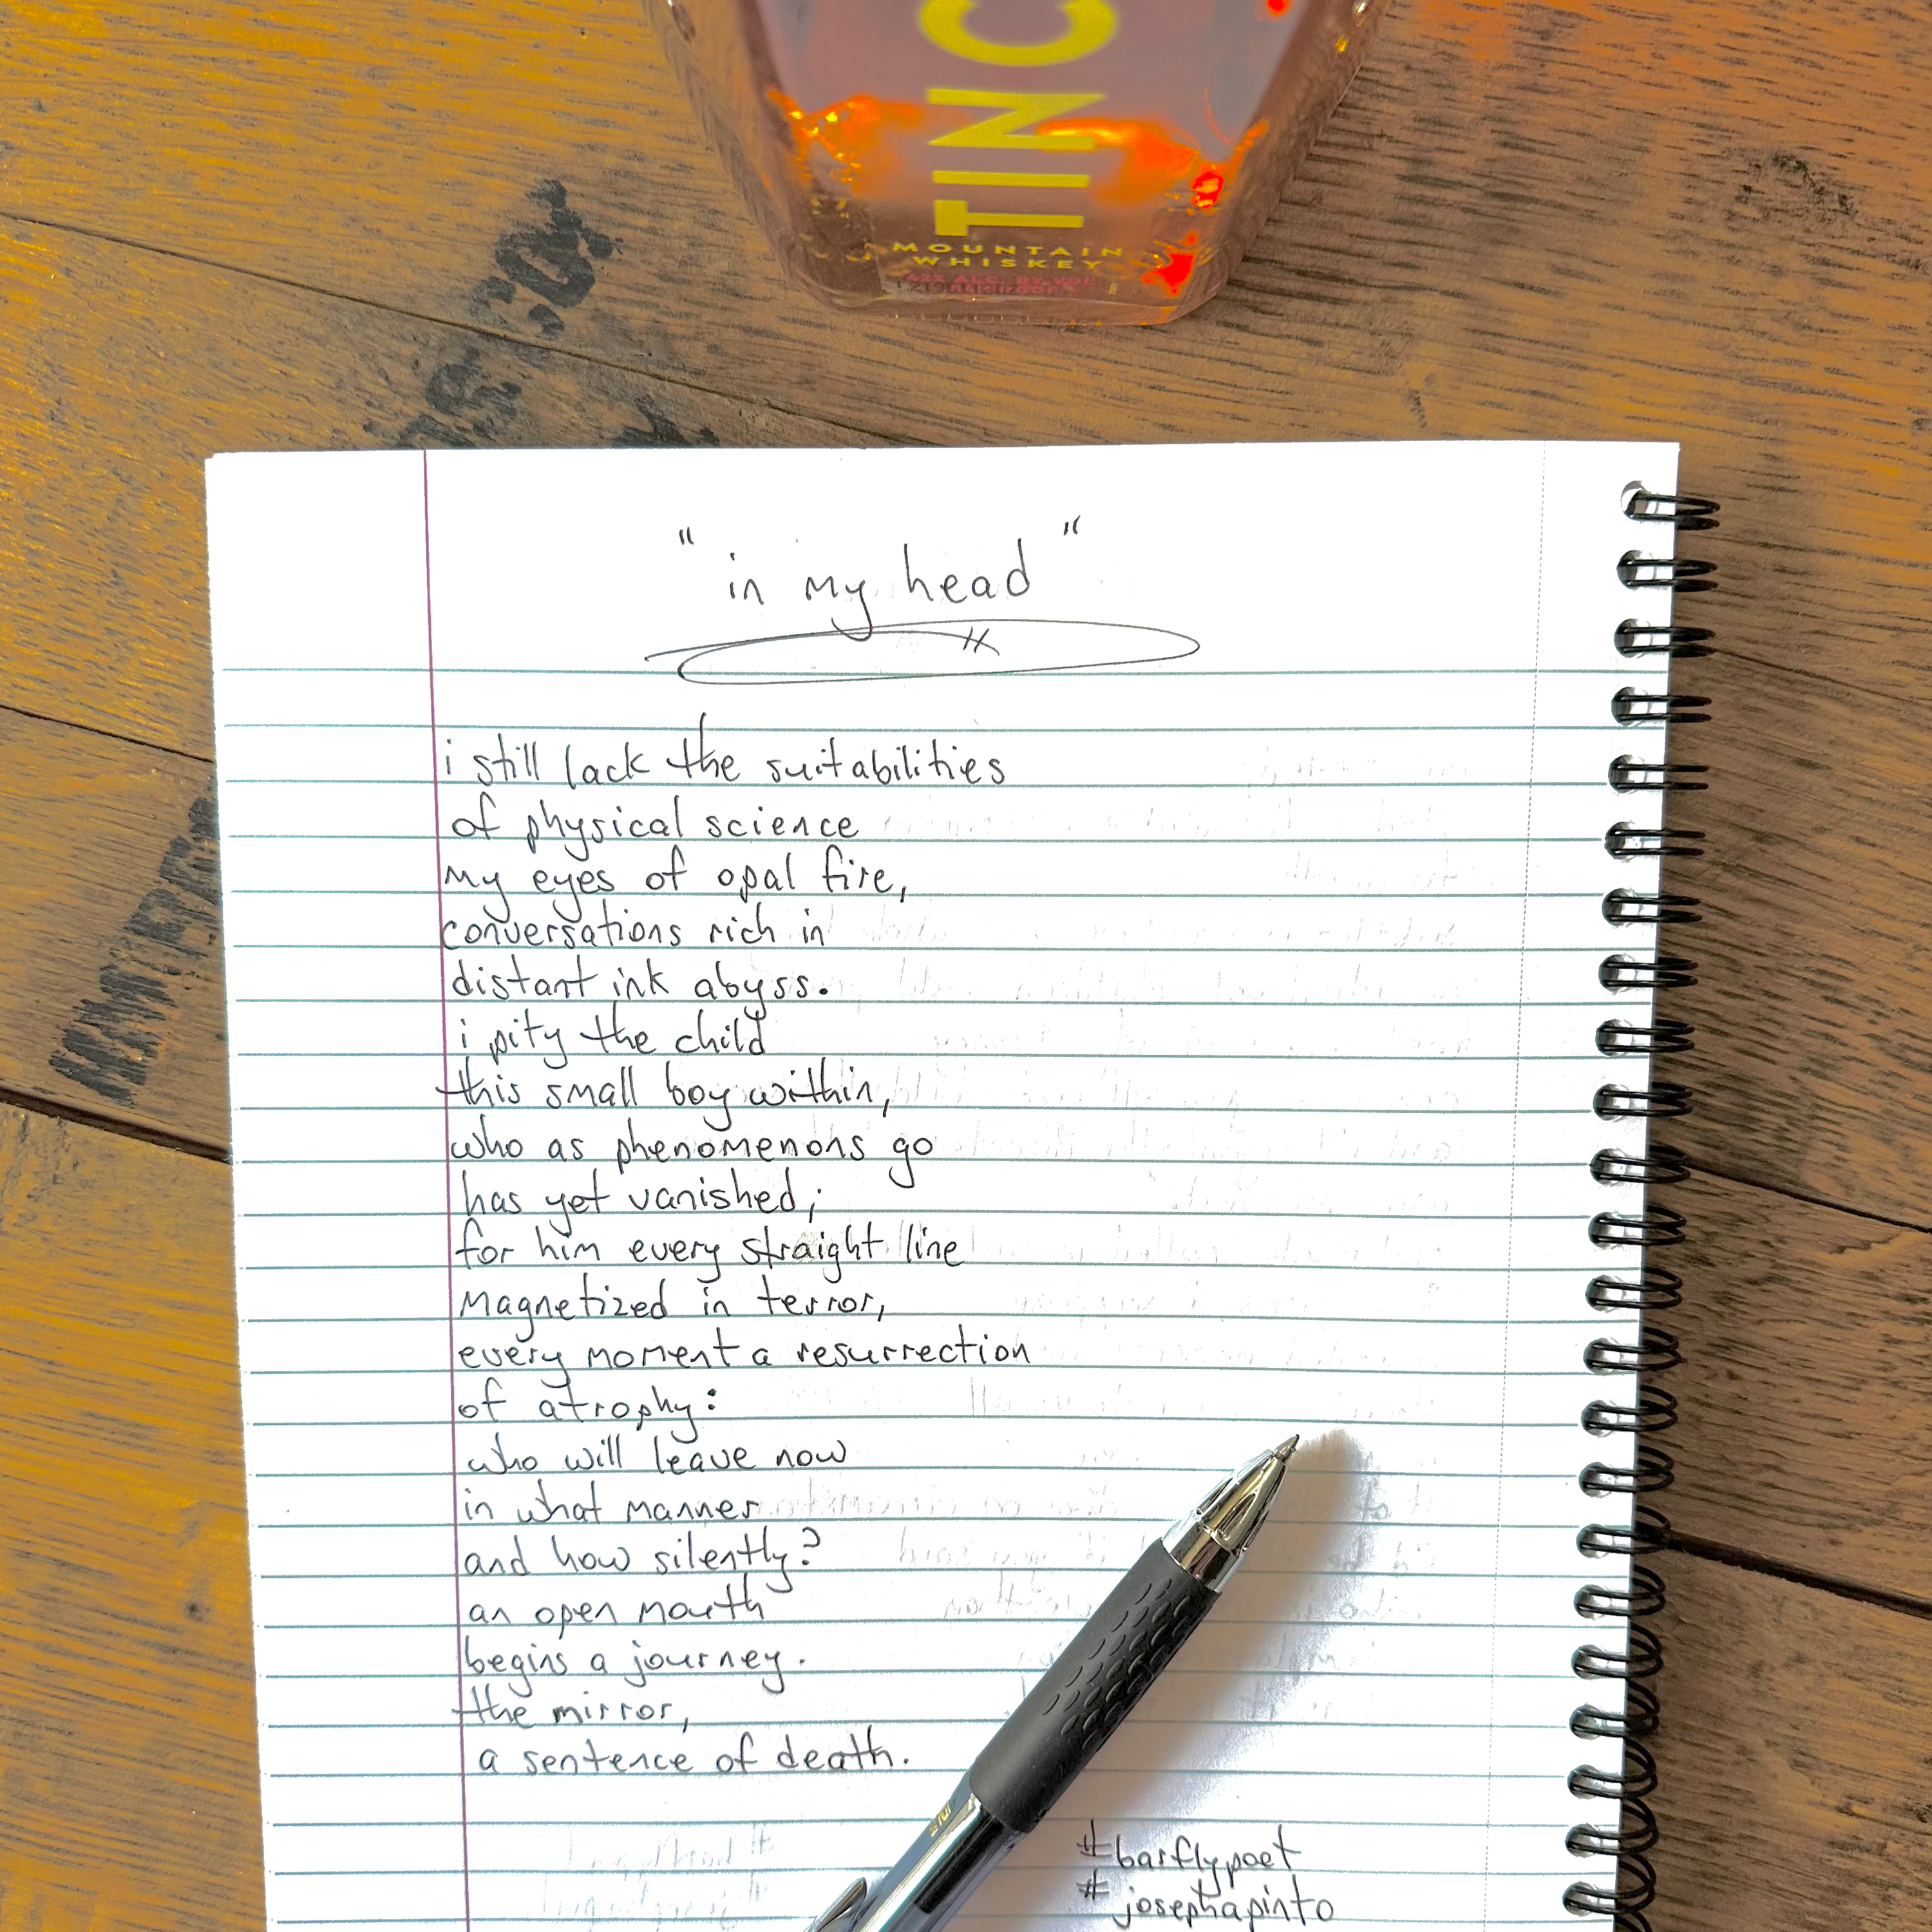 TINC
MOUNTAIN
WHISKEY
"in my head"
i still lack the suitabilities
of physical science
my eyes of opal fire,
conversations rich in
distant ink abyss.
i pity the child
this small boy within,
who as phenomenons go
has yet vanished;
for him every straight line
magnetized in terror,
every moment a resurrection
of atrophy:
who will leave now
in what manner
and how silently?
an open mouth
begins a journey.
the mirror,
a sentence of death.
#barflypoet
#josephapinto